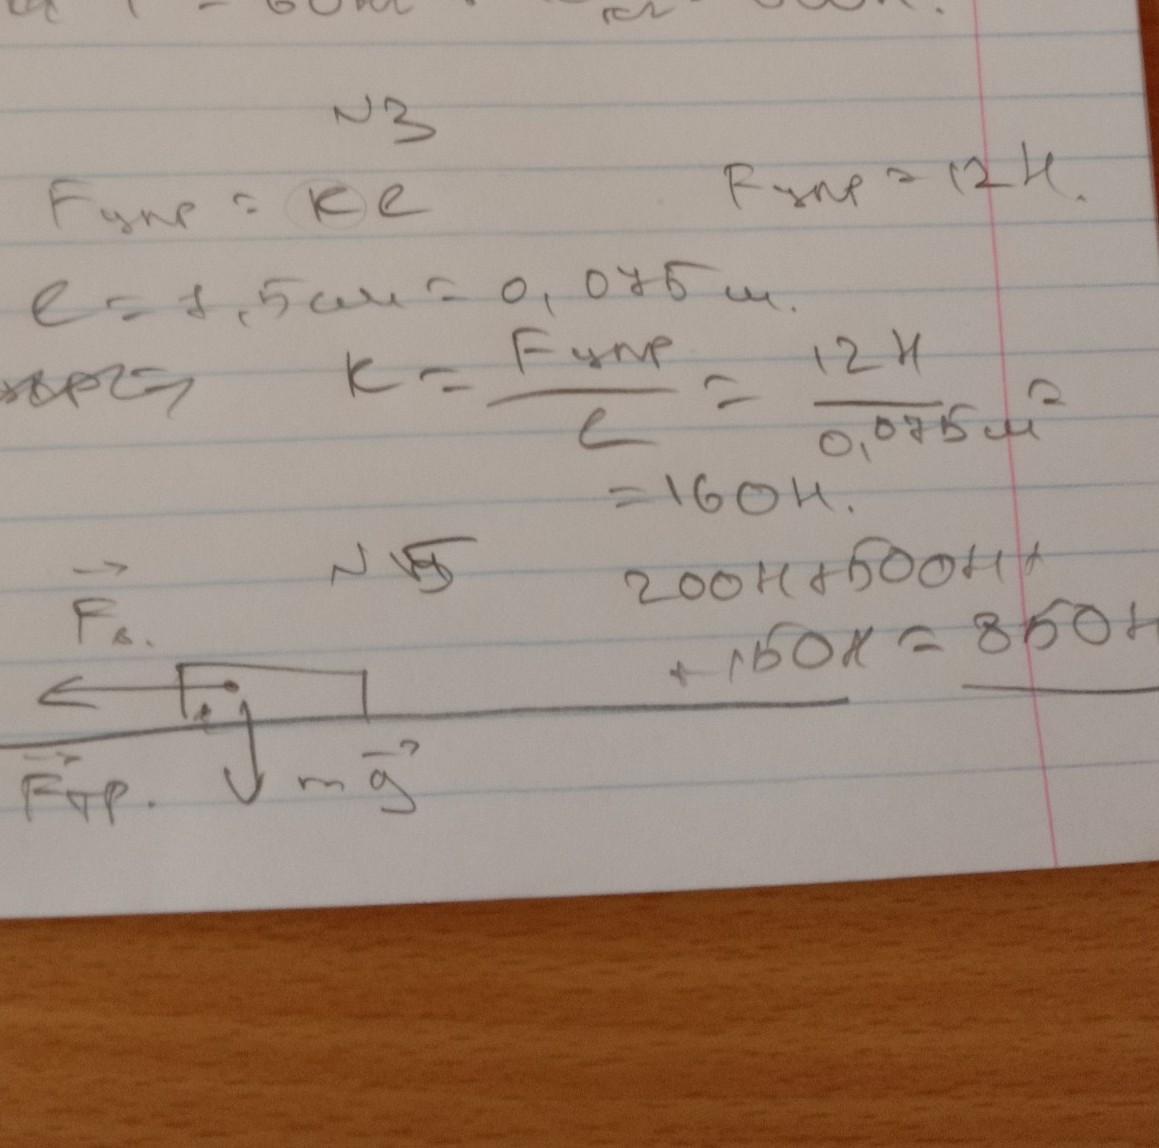 N3
Fупр = kl Fупр = 12Н.
l = 7,5см = 0,075м.
k = Fупр / l = 12Н / 0,075м =
= 160Н.
N 5 200Н + 500Н +
Fв. + 150Н = 850Н
Fтр. mg